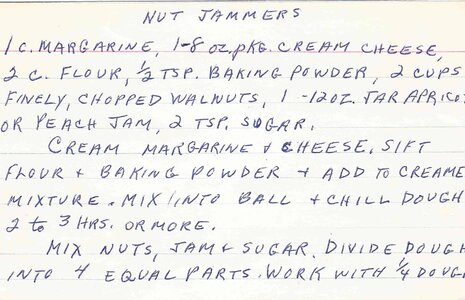 NUT JAMMERS
1 C. MARGARINE, 1-8 OZ. PKG. CREAM CHEESE,
2 C. FLOUR, 1/2 TSP. BAKING POWDER, 2 CUPS
FINELY, CHOPPED WALNUTS, 1 -12 OZ. JAR APRICO
OR PEACH JAM, 2 TSP. SUGAR.
CREAM MARGARINE + CHEESE. SIFT
FLOUR + BAKING POWDER + ADD TO CREAME
MIXTURE. MIX INTO BALL + CHILL DOUGH
2 to 3 HRS. OR MORE.
MIX NUTS, JAM + SUGAR. DIVIDE DOUGH
INTO 4 EQUAL PARTS. WORK WITH 1/4 DOUGH